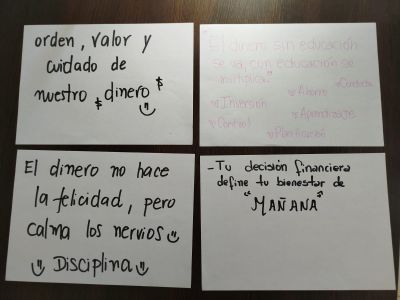 orden, valor y
cuidado de
nuestro $ dinero $
"El dinero sin educación
se va, con educación se
multiplica."
Ahorro
Conducta
Inversión
Aprendizaje
Control
Planificación
El dinero no hace
la felicidad, pero
calma los nervios
Disciplina
- Tu decisión financiera
define tu bienestar de
"MAÑANA"